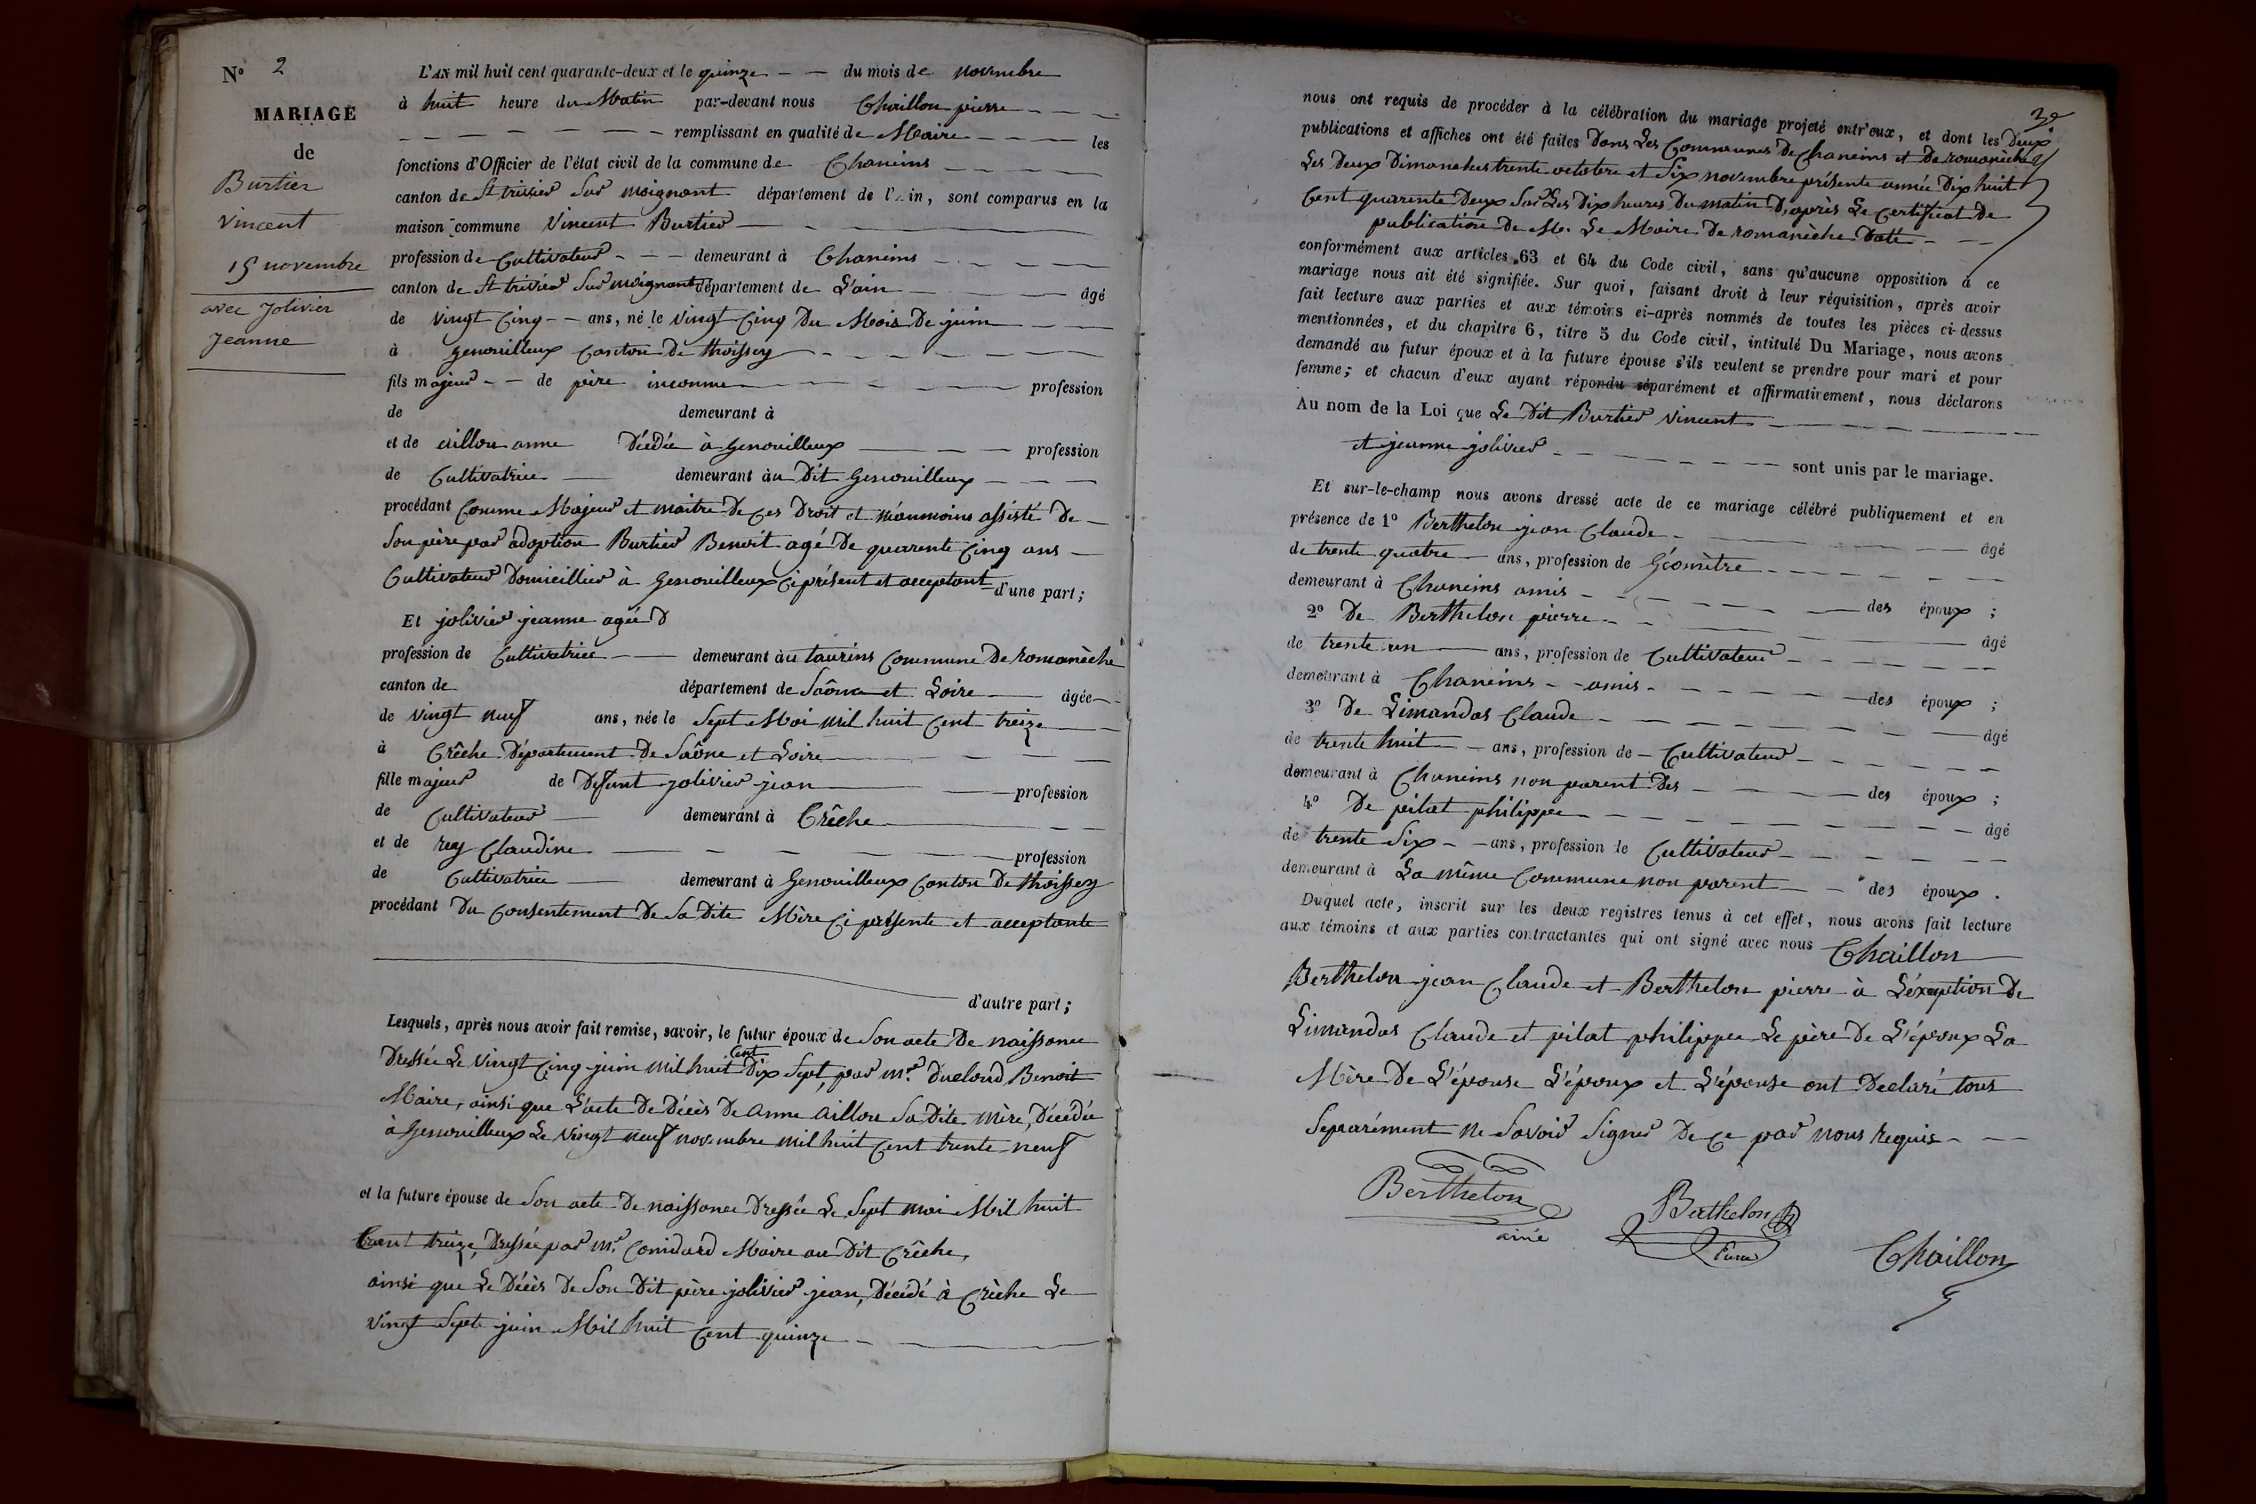 N° 2
MARIAGE
de
Burtier
Vincent
15 novembre
avec Jolivier
Jeanne
L'AN mil huit cent quarante-deux et le quinze du mois de novembre
à huit heure du Matin par-devant nous Chaillon pierre
remplissant en qualité de Maire les
fonctions d'Officier de l'état civil de la commune de Chaneins
canton de St trivier Sur moignant département de l'Ain, sont comparus en la
maison commune Vincent Burtier
profession de Cultivateur demeurant à Chaneins
canton de St trivier Sur moignant département de L'ain âgé
de vingt Cinq ans, né le vingt Cinq Du Mois De juin
à genouilleux Canton de thoissey
fils majeur de père inconnu profession
de demeurant à
et de aillon anne Décédée à genouilleux profession
de Cultivatrice demeurant au Dit genouilleux
procédant Comme Majeur et maitre De Ces Droit et néanmoins assisté De
Son père par adoption Burtier Benoit agé De quarente Cinq ans
Cultivateur Domicillier à Genouilleux Ci présent et acceptant d'une part;
Et jolivier jeanne agée D
profession de Cultivatrice demeurant au taurins Commune De romanèche
canton de département de Saône et Loire âgée
de vingt neuf ans, née le Sept Mai mil huit Cent treize
à Crêche Département De Saône et Loire
fille majeur de Défunt jolivier jean profession
de Cultivateur demeurant à Crêche
et de rey Claudine profession
de Cultivatrice demeurant à Genouilleux Canton De thoissey
procédant Du Consentement De Sa Dite Mère Ci présente et acceptante
d'autre part;
Lesquels, après nous avoir fait remise, savoir, le futur époux de Son acte De naissance
Dressée Le vingt Cinq juin mil huit Cent Dix Sept, par mr. Ducloud Benoit
Maire, ainsi que L'acte De Décès De anne aillon Sa Dite mère, Décédée
à Genouilleux Le vingt neuf novembre mil huit Cent trente neuf
et la future épouse de Son acte De naissance Dressée Le Sept mai Mil huit
Cent treize, Dressée par mr. Maire au Dit Crêche,
ainsi que Le Décès De Son Dit père jolivier jean, Décédé à Crêche Le
vingt Sept juin Mil huit Cent quinze
nous ont requis de procéder à la célébration du mariage projeté entr'eux, et dont les Deux
publications et affiches ont été faites Dans Les Communes De Chaneins et De romanèche
Les Deux Dimanches trente octobre et Six novembre présente année Dix huit
Cent quarente Deux Sur Les Dix heures Du matin D'après Le Certificat De
publication De Mr. Le Maire De romanèche Daté
conformément aux articles 63 et 64 du Code civil, sans qu'aucune opposition à ce
mariage nous ait été signifiée. Sur quoi, faisant droit à leur réquisition, après avoir
fait lecture aux parties et aux témoins ci-après nommés de toutes les pièces ci-dessus
mentionnées, et du chapitre 6, titre 5 du Code civil, intitulé Du Mariage, nous avons
demandé au futur époux et à la future épouse s'ils veulent se prendre pour mari et pour
femme; et chacun d'eux ayant répondu séparément et affirmativement, nous déclarons
Au nom de la Loi que Le Dit Burtier Vincent
et jeanne jolivier sont unis par le mariage.
Et sur-le-champ nous avons dressé acte de ce mariage célébré publiquement et en
présence de 1° Berthelon jean Claude âgé
de trente quatre ans, profession de Géomètre
demeurant à Chaneins amis des époux ;
2° De Berthelon pierre âgé
de trente un ans, profession de Cultivateur
demeurant à Chaneins amis des époux ;
3° De Limandas Claude âgé
de trente huit ans, profession de Cultivateur
demeurant à Chaneins non parent Des des époux ;
4° De pilat philippe âgé
de trente Six ans, profession de Cultivateur
demeurant à La même Commune non parent des époux.
Duquel acte, inscrit sur les deux registres tenus à cet effet, nous avons fait lecture
aux témoins et aux parties contractantes qui ont signé avec nous Chaillon
Berthelon jean Claude et Berthelon pierre à L'éxception De
Limandas Claude et pilat philippe Le père De L'époux La
Mère De L'épouse L'époux et L'épouse ont Declaré tous
Separément ne Savoir Signer De Ce par nous requis
Berthelon
ainé
Berthelon
Chaillon